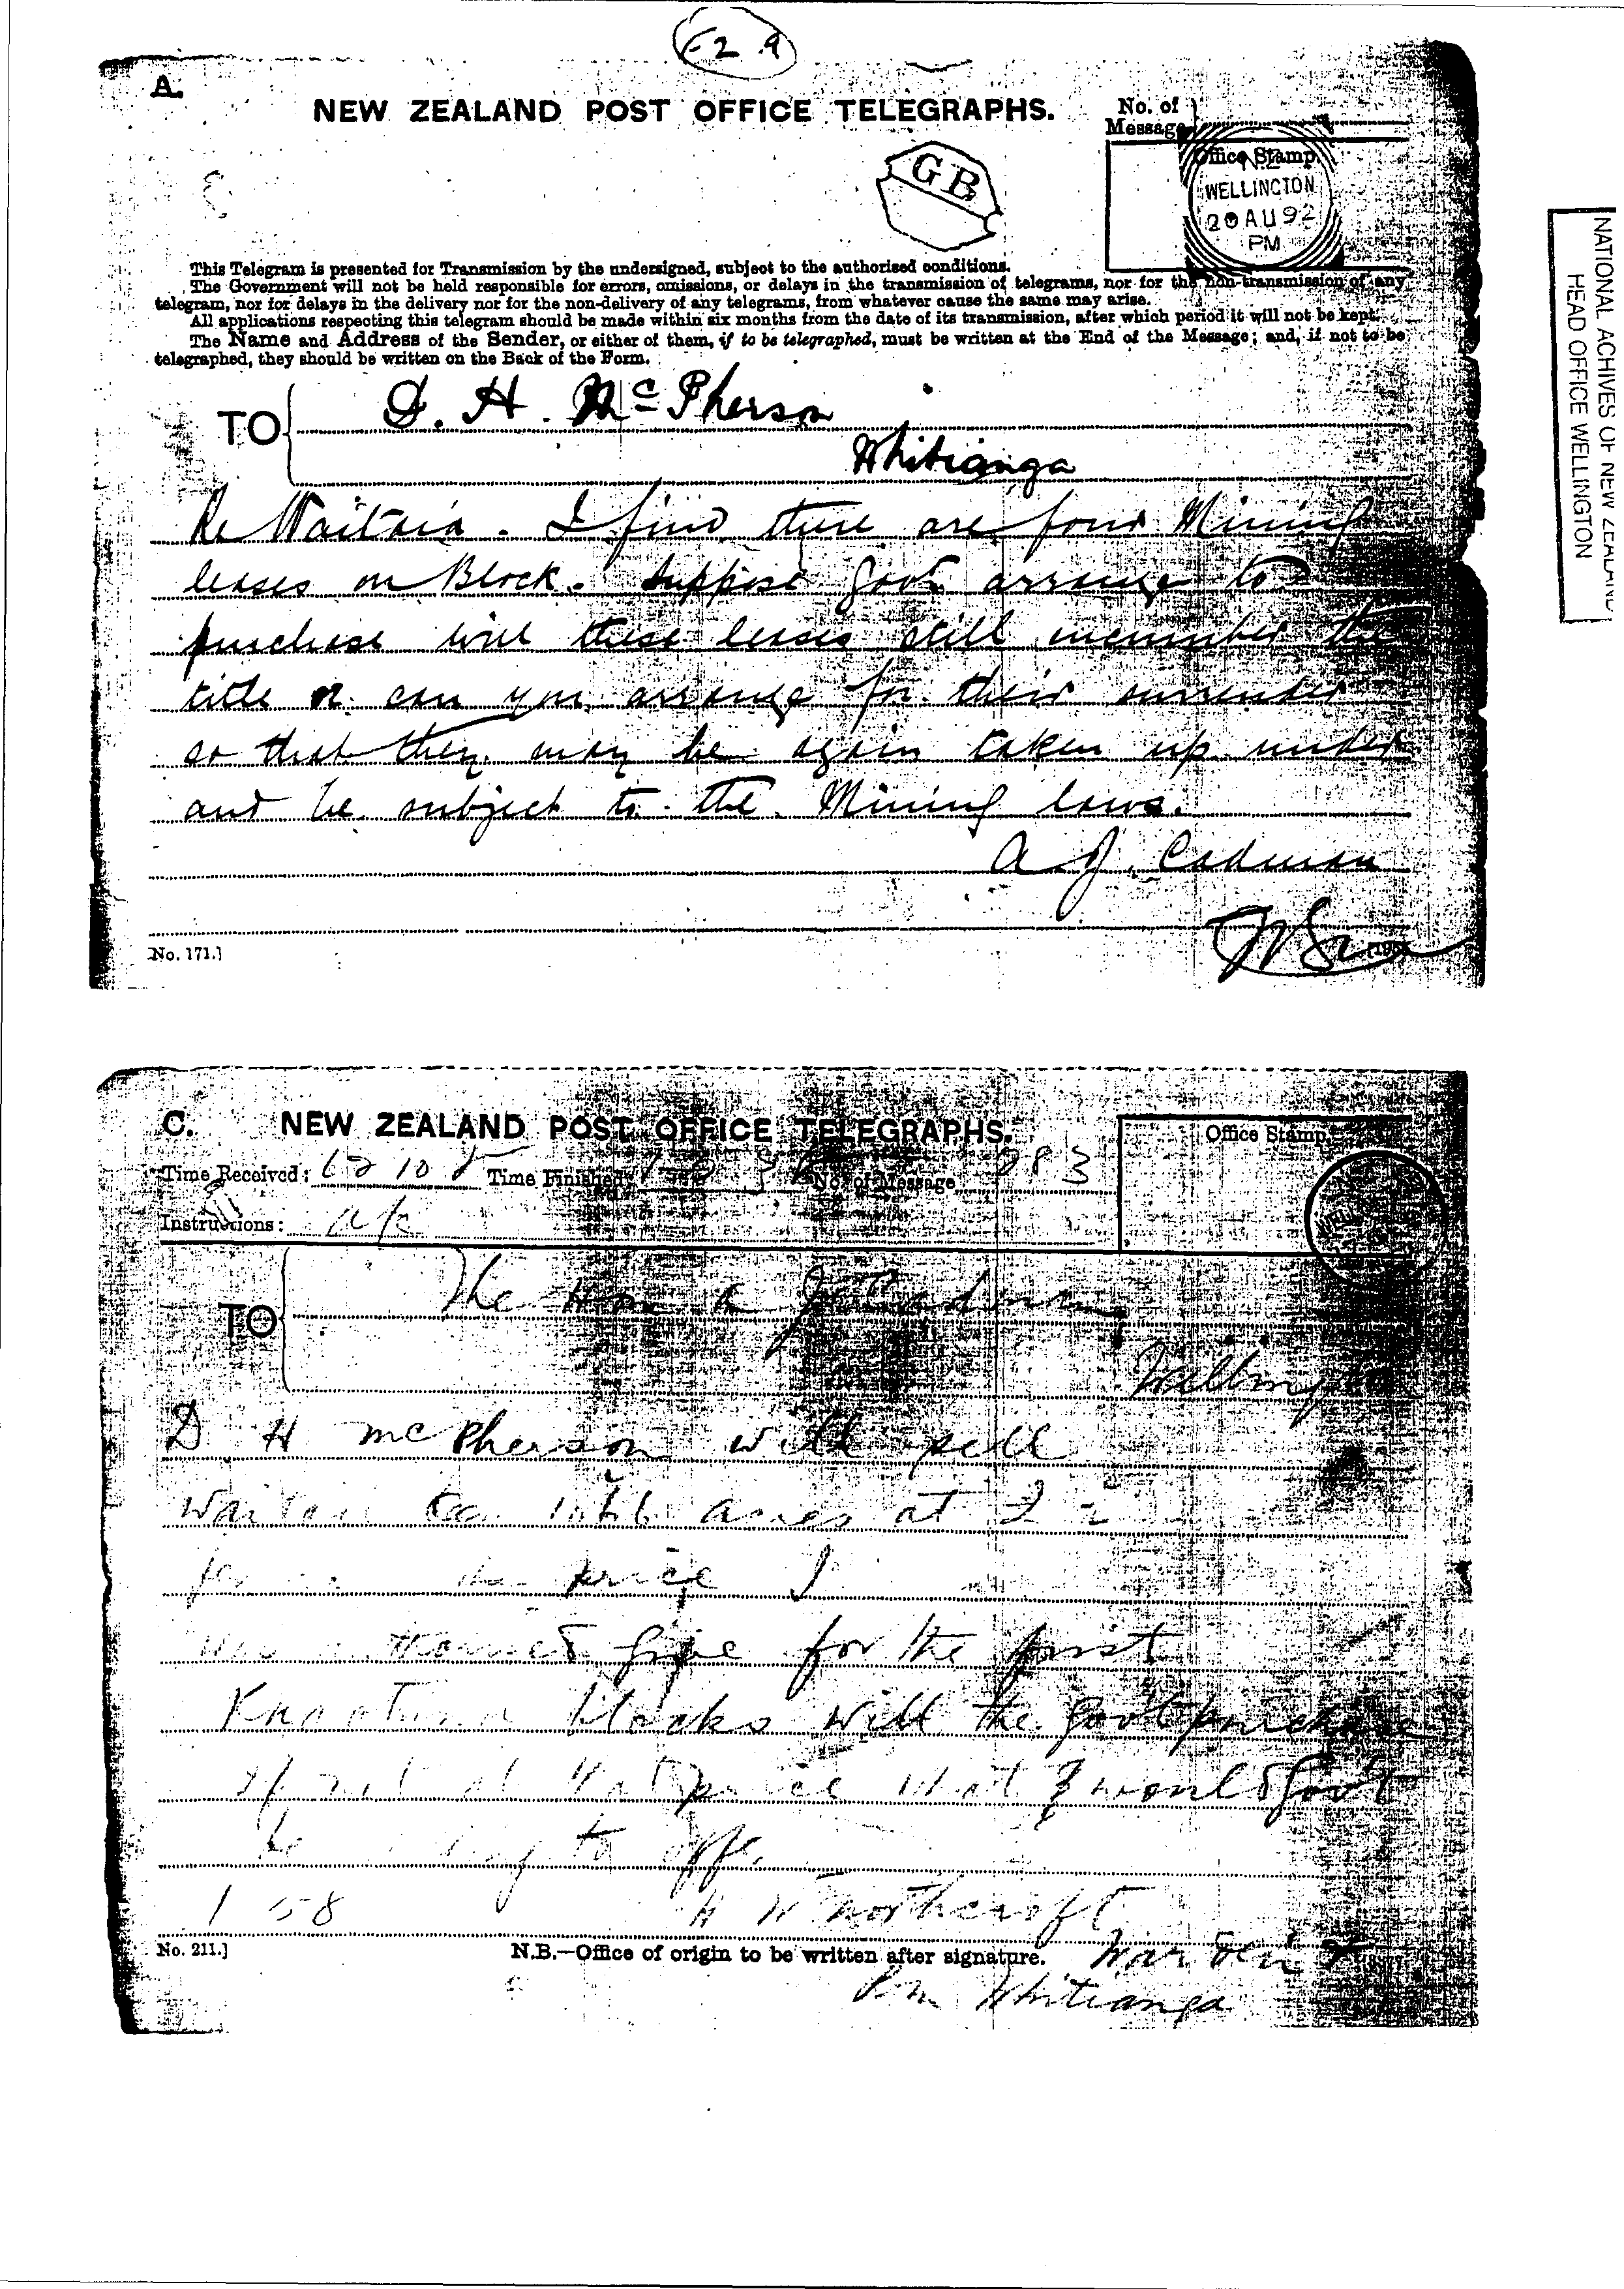 E 2 9
A.
NEW ZEALAND POST OFFICE TELEGRAPHS.
No. of
Message
Office Stamp.
WELLINGTON
20 AU 92
PM
GB
This Telegram is presented for Transmission by the undersigned, subject to the authorised conditions.
The Government will not be held responsible for errors, omissions, or delays in the transmission of telegrams, nor for the non-transmission of any
telegram, nor for delays in the delivery nor for the non-delivery of any telegrams, from whatever cause the same may arise.
All applications respecting this telegram should be made within six months from the date of its transmission, after which period it will not be kept.
The Name and Address of the Sender, or either of them, if to be telegraphed, must be written at the End of the Message; and, if not to be
telegraphed, they should be written on the Back of the Form.
TO
H. McPherson
Whitianga
Re Waitaia. I find there are four Mining
leases on Block. Suppose Govt arrange to
purchase will these leases still encumber the
title or can you arrange for their surrender
so that they may be again taken up under
and be subject to the Mining laws.
A J. Cadman
No. 171.]
NATIONAL ACHIVES OF NEW ZEALAND
HEAD OFFICE WELLINGTON
C. NEW ZEALAND POST OFFICE TELEGRAPHS.
Office Stamp.
Time Received: Time Finished: No. of Message 283
Instructions:
TO
The Hon A J Cadman
Wellington
D H McPherson will sell
Waitaia acres at
price I
was give for the first
blocks will the Govt purchase
if not at that price what would Govt
be to offer
1 58
H W Northcroft
No. 211.]
N.B.—Office of origin to be written after signature.
Warden
R m Whitianga